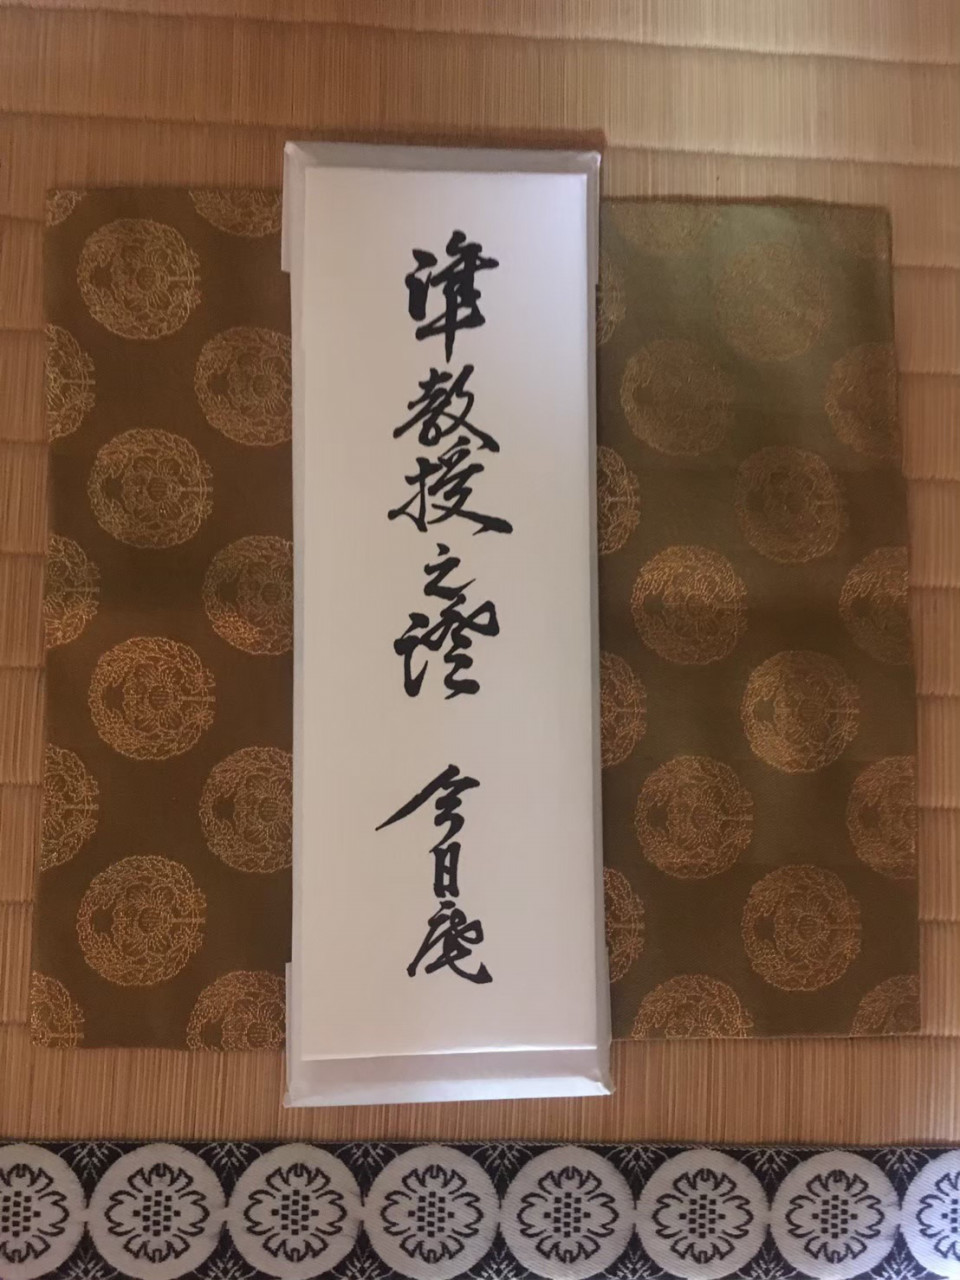 準教授之證 今日庵